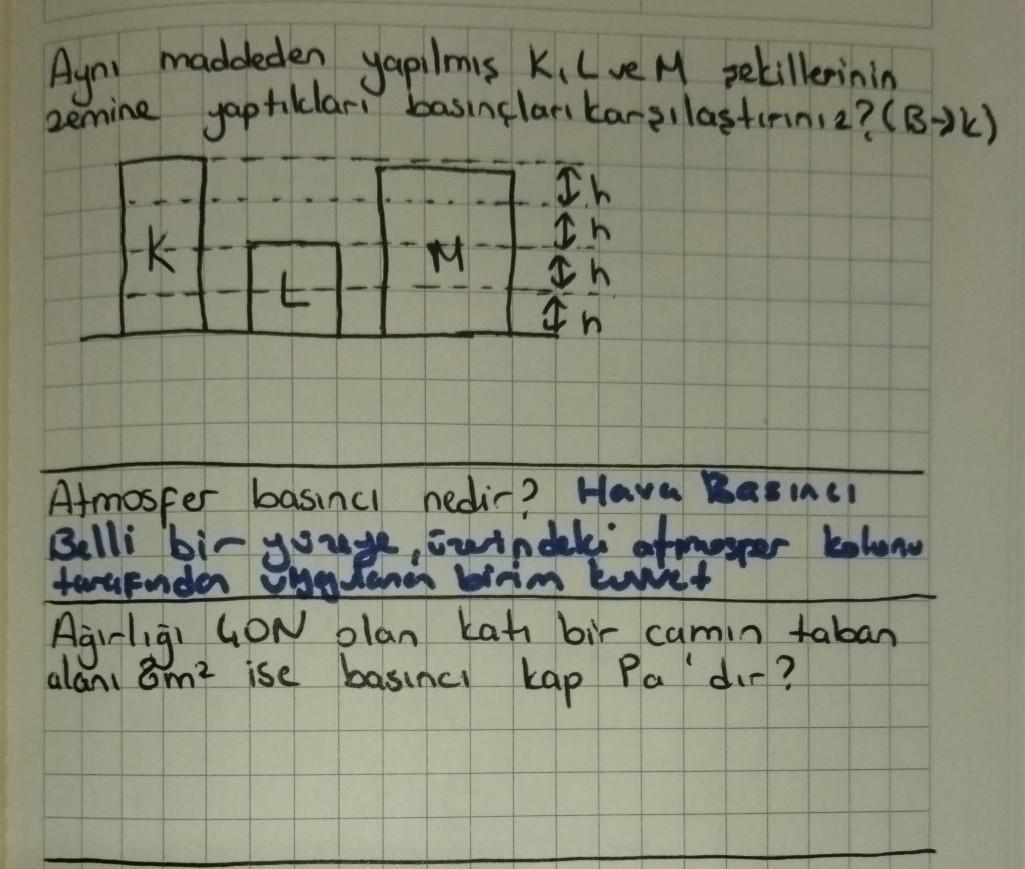 Aynı maddeden yapılmış K, L ve M şekillerinin
zemine yaptıkları basınçları karşılaştırınız? (B→k)
h
K M h
L h
h
Atmosfer basıncı nedir? Hava Basıncı
Belli bir yüzeye, üzerindeki atmosper kolonu
tarafından uygulanan birim kuvvet
Ağırlığı 40N olan katı bir camın taban
alanı 8m² ise basıncı kap Pa'dır?